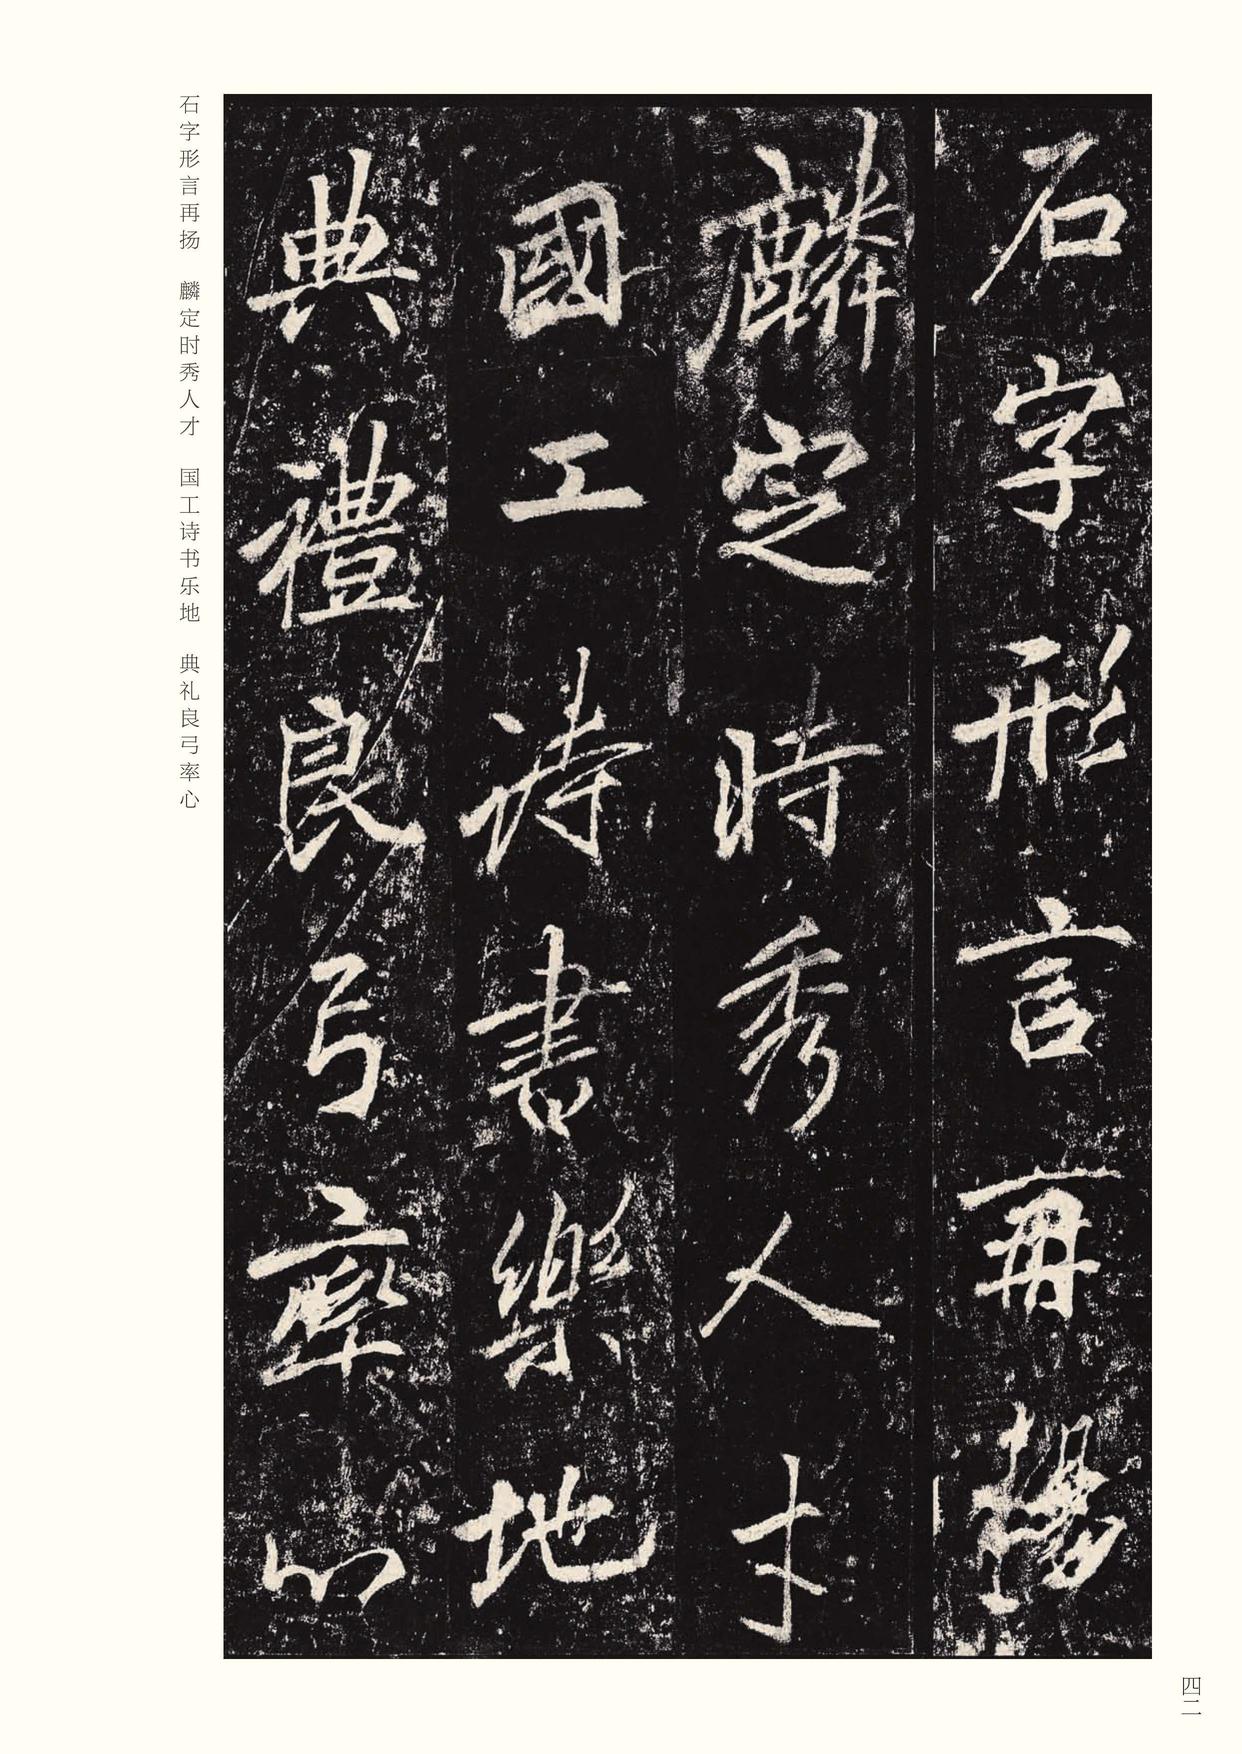 石字形言再揚
麟定時秀人才
國工詩書樂地
典禮良弓率心
石字形言再扬　麟定时秀人才　国工诗书乐地　典礼良弓率心
四二